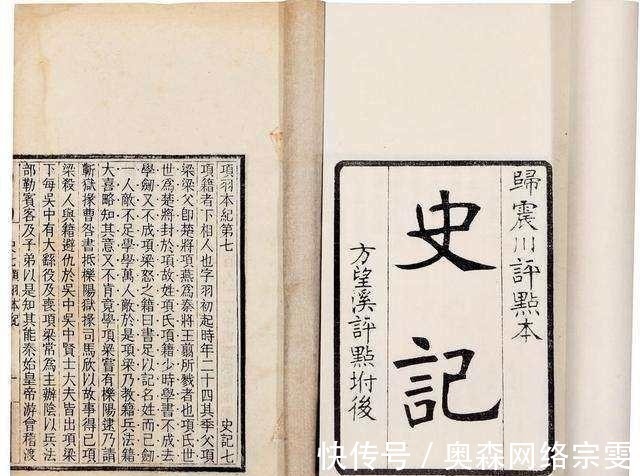 歸震川評點本
史記
方望溪評點坿後
項羽本紀第七
史記七
項籍者下相人也字羽初起時年二十四其季父項
梁梁父卽楚將項燕爲秦將王翦所戮者也項氏世
世爲楚將封於項故姓項氏項籍少時學書不成去
學劍又不成項梁怒之籍曰書足以記名姓而已劍
一人敵不足學學萬人敵於是項梁乃教籍兵法籍
大喜略知其意又不肯竟學項梁嘗有櫟陽逮乃請
蘄獄掾曹咎書抵櫟陽獄掾司馬欣以故事得已項
梁殺人與籍避仇於吳中吳中賢士大夫皆出項梁
下每吳中有大繇役及喪項梁常爲主辦陰以兵法
部勒賓客及子弟以是知其能秦始皇帝游會稽渡
快传号/奥森网络宗雯